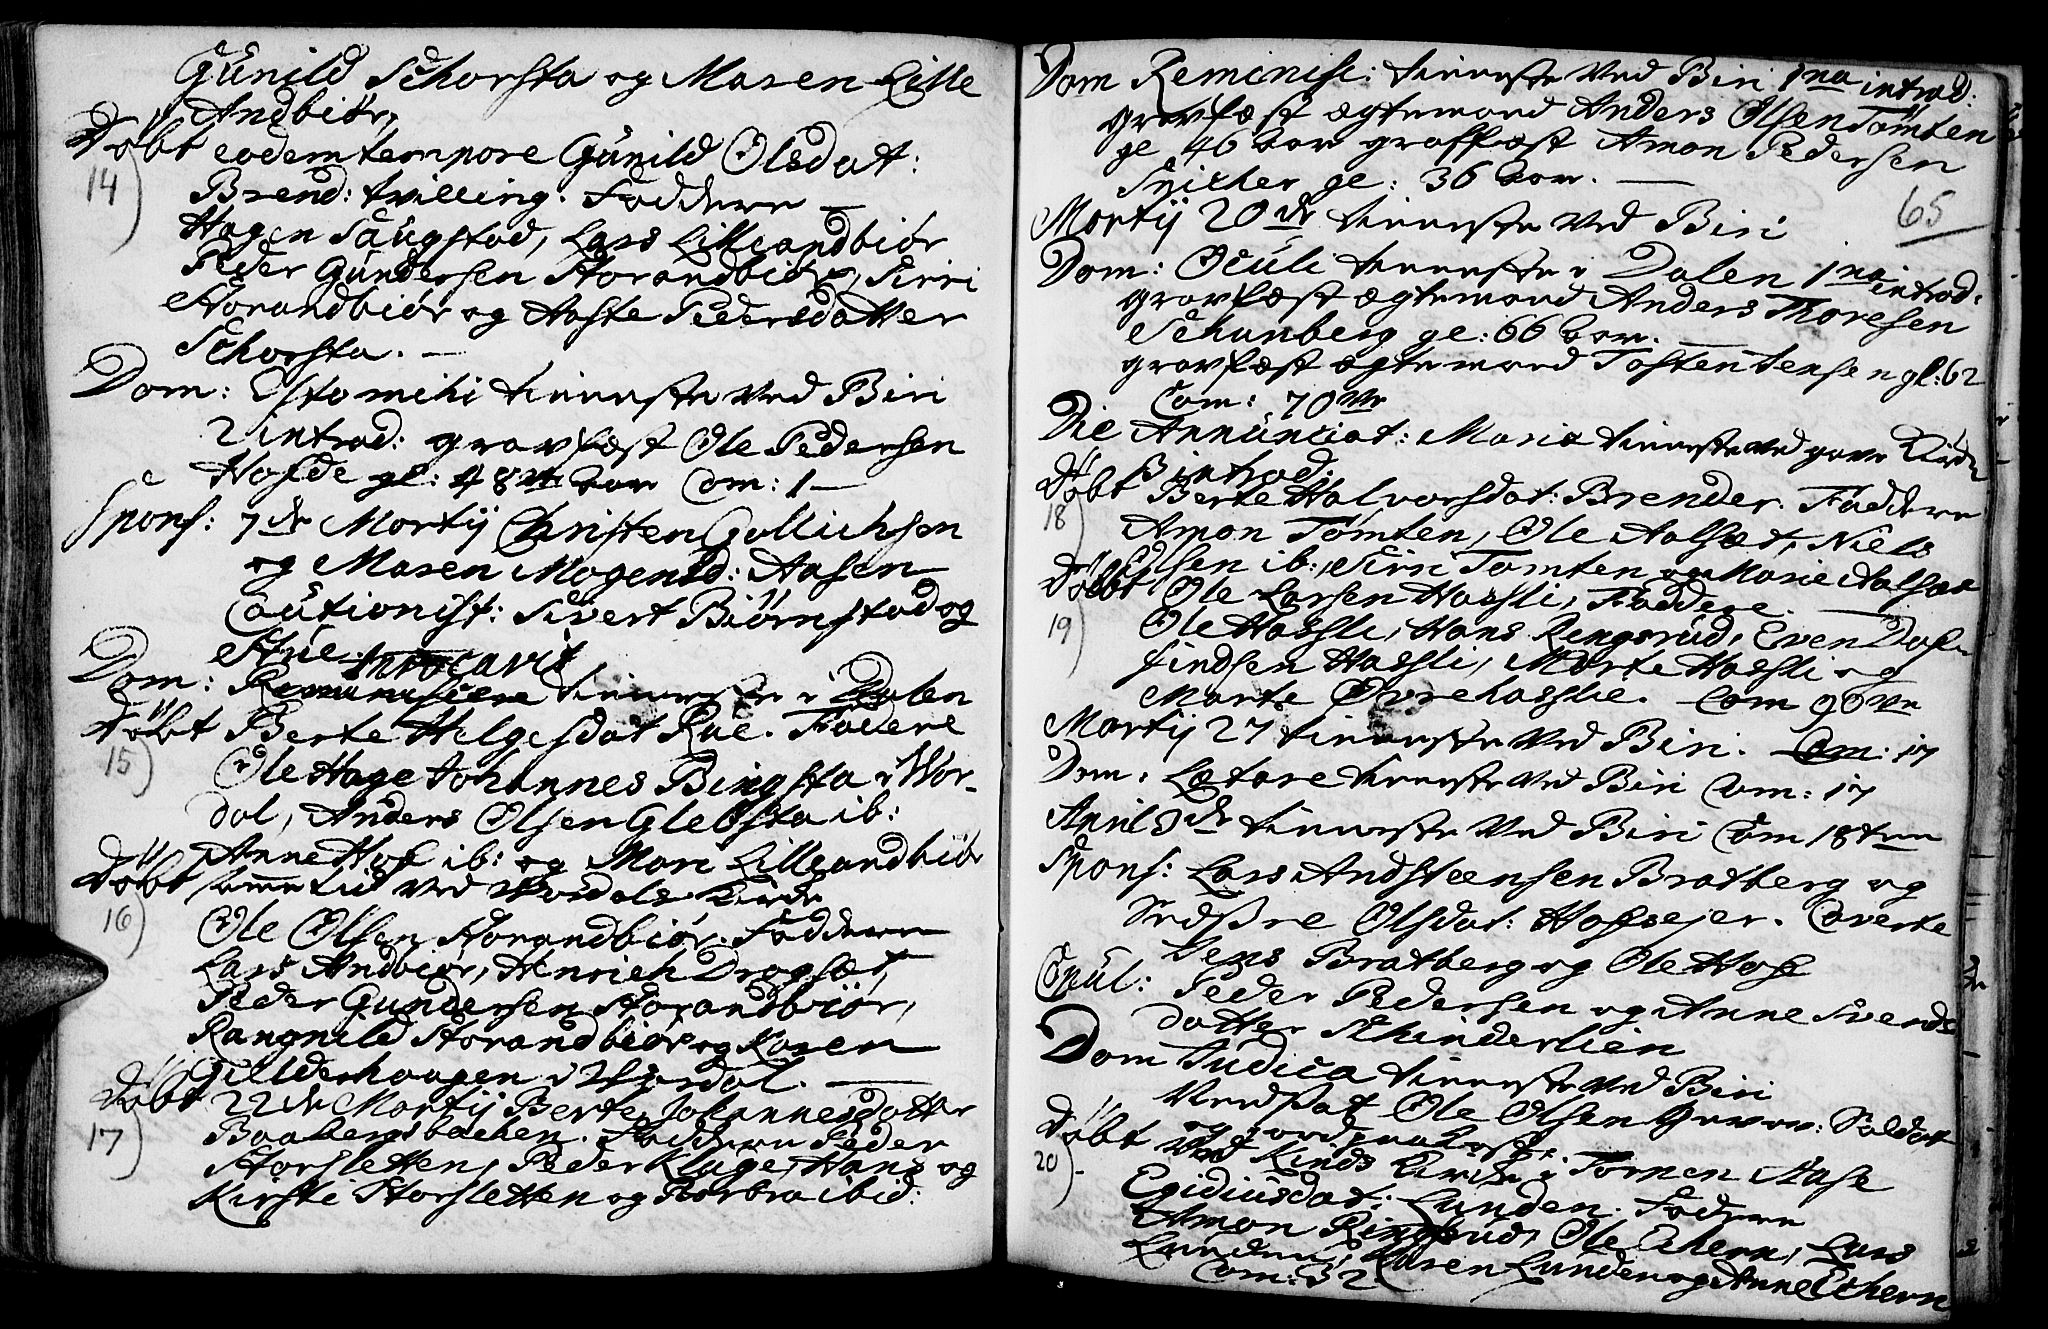 Gunild Schorsta og Maren Lille
Andbiør,
Døbt eodem tempore Gunild Olsdat:
14) Brend: tvilling. Faddere —
Hagen Saugstad, Lars Lilleandbiør
Peder Gundersen Storandbiør, Sirri
Storandbiør og Aaste Pedersdatter
Schorsta. —
Dom: Estomihi tieneste ved Biri
2 introd: gravfæst Ole Pedersen
Hofde gl: 48 aar Com: 1 —
Spons: 7de Martij Christen Gullichsen
og Maren Mogensd: Aasen
Cautionist: Sivert Biørnstad og
Stue.
Invocavit
Dom: Reminiscere tieneste i Dalen
Døbt Berte Helgesdat Rue. Faddere
15) Ole Hage Johannes Bingsta i War-
dal, Anders Olsen Glebsta ib:
Anne Hof ib: og Mari Lilleandbiør
Døbt samme tid ved Wardals Kirche
16) Ole Olsen Storandbiør. Faddere
Lars Andbiør, Henrich Dragset,
Peder Gundersen Storandbiør,
Rangnild Storandbiør og Karen
Gilderhaagen i Wardal. —
Døbt 22de Martij Berte Johannesdatter
17) Baabergsbachen. Faddere Peder
Storsletten, Peder Kluge, Hans og
Kirsti Storsletten og Barbra ibid:
Dom Reminisc: tieneste ved Biri 1na introd:
gravfæst ægtemand Anders Olsen Tømten
gl 46 aar graffæst Amon Pedersen
Svicher gl: 36 aar. —
65
Martij 20de tieneste ved Biri
Dom: Oculi tieneste i Dalen 1na introd:
gravfæst ægtemand Anders Thoresen
Schunberg gl: 66 aar. —
gravfæst ægtemand Tosten Jensen gl: 62
Com: 70
Die Annunciat: Mariæ tieneste ved Kirche
3 introd:
Døbt Berte Halvorsdat: Brender. Faddere
18) Amon Tømten, Ole Aalset, Niels
Olsen ib:, Sirri Tomten og Marie Aalset
Døbt Ole Larsen Hassli, Faddere. —
19) Ole Hassli, Hans Rengsrud, Even Dol-
findsen Hassli, Marte Hassli og
Marte Øvrehasslie. Com 96
Martij 27 tieneste ved Biri. Com: 17
Dom: Lætare tieneste ved Biri Com: 17
April 3de tieneste ved Biri Com 18
Spons: Lars Andsteensen Bratberg og
Olsdat: Hofsejer. Caverte
Jens Bratberg og Ole Hof
Copul: Peder Pedersen og Anne Svends
datter Schinderlien
Dom Judica tieneste ved Biri
Ole Olsen Soldat
og
Døbt ved Rinds Kirche i Tornen Aase
20) Egidiusdat: Lunden. Faddere
Amon Rindsrud, Ole Echern, Lars
Lunden, Karen Lunden og Anne Echern
Com: 32